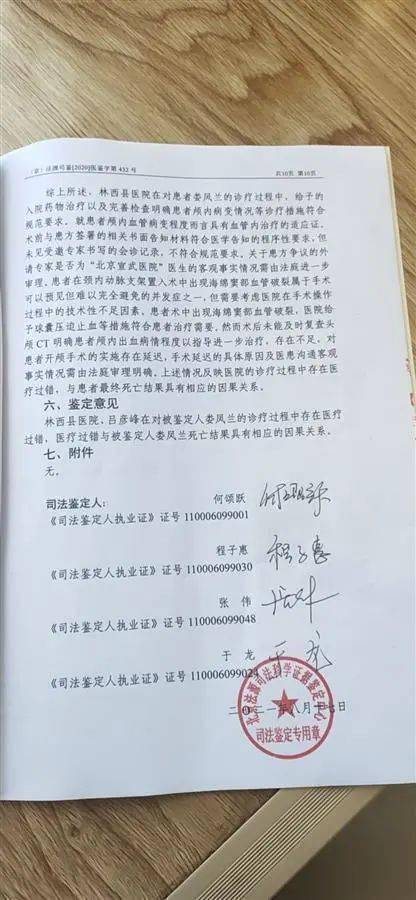 （京）法源司鉴[2020]医鉴字第 432 号 共10页 第10页
综上所述，林西县医院在对患者娄凤兰的诊疗过程中，给予的
入院药物治疗以及完善检查明确患者颅内病变情况等诊疗措施符合
规范要求。就患者颅内血管病变程度而言具有血管内治疗的适应证。
术前与患方签署的相关书面告知材料符合医学告知的程序性要求，但
未见受邀专家书写的会诊记录，不符合规范要求。关于患方争议的外
请专家是否为“北京宣武医院”医生的客观事实情况需由法庭进一步
审理。患者在颈内动脉支架置入术中出现海绵窦部血管破裂属于手术
可以预见但难以完全避免的并发症之一，但需要考虑医院在手术操作
过程中的技术性不足因素，患者术中出现海绵窦部血管破裂，医院给
予球囊压迫止血等措施符合患者治疗需要，然而术后未能及时复查头
颅 CT 明确患者颅内出血病情程度以指导进一步治疗，存在不足，对
患者开颅手术的实施存在延迟，手术延迟的具体原因及医患沟通客观
事实情况需由法庭审理明确。上述情况反映医院的诊疗过程中存在医
疗过错，与患者最终死亡结果具有相应的因果关系。
六、鉴定意见
林西县医院、吕彦峰在对被鉴定人娄凤兰的诊疗过程中存在医疗
过错，医疗过错与被鉴定人娄凤兰死亡结果具有相应的因果关系。
七、附件
无。
司法鉴定人： 何颂跃 何颂跃
《司法鉴定人执业证》证号 110006099001
程子惠 程子惠
《司法鉴定人执业证》证号 110006099030
张 伟 张伟
《司法鉴定人执业证》证号 110006099048
于 龙 于龙
《司法鉴定人执业证》证号 110006099024
二〇二一年八月十七日
北京法源司法科学证据鉴定中心
司法鉴定专用章